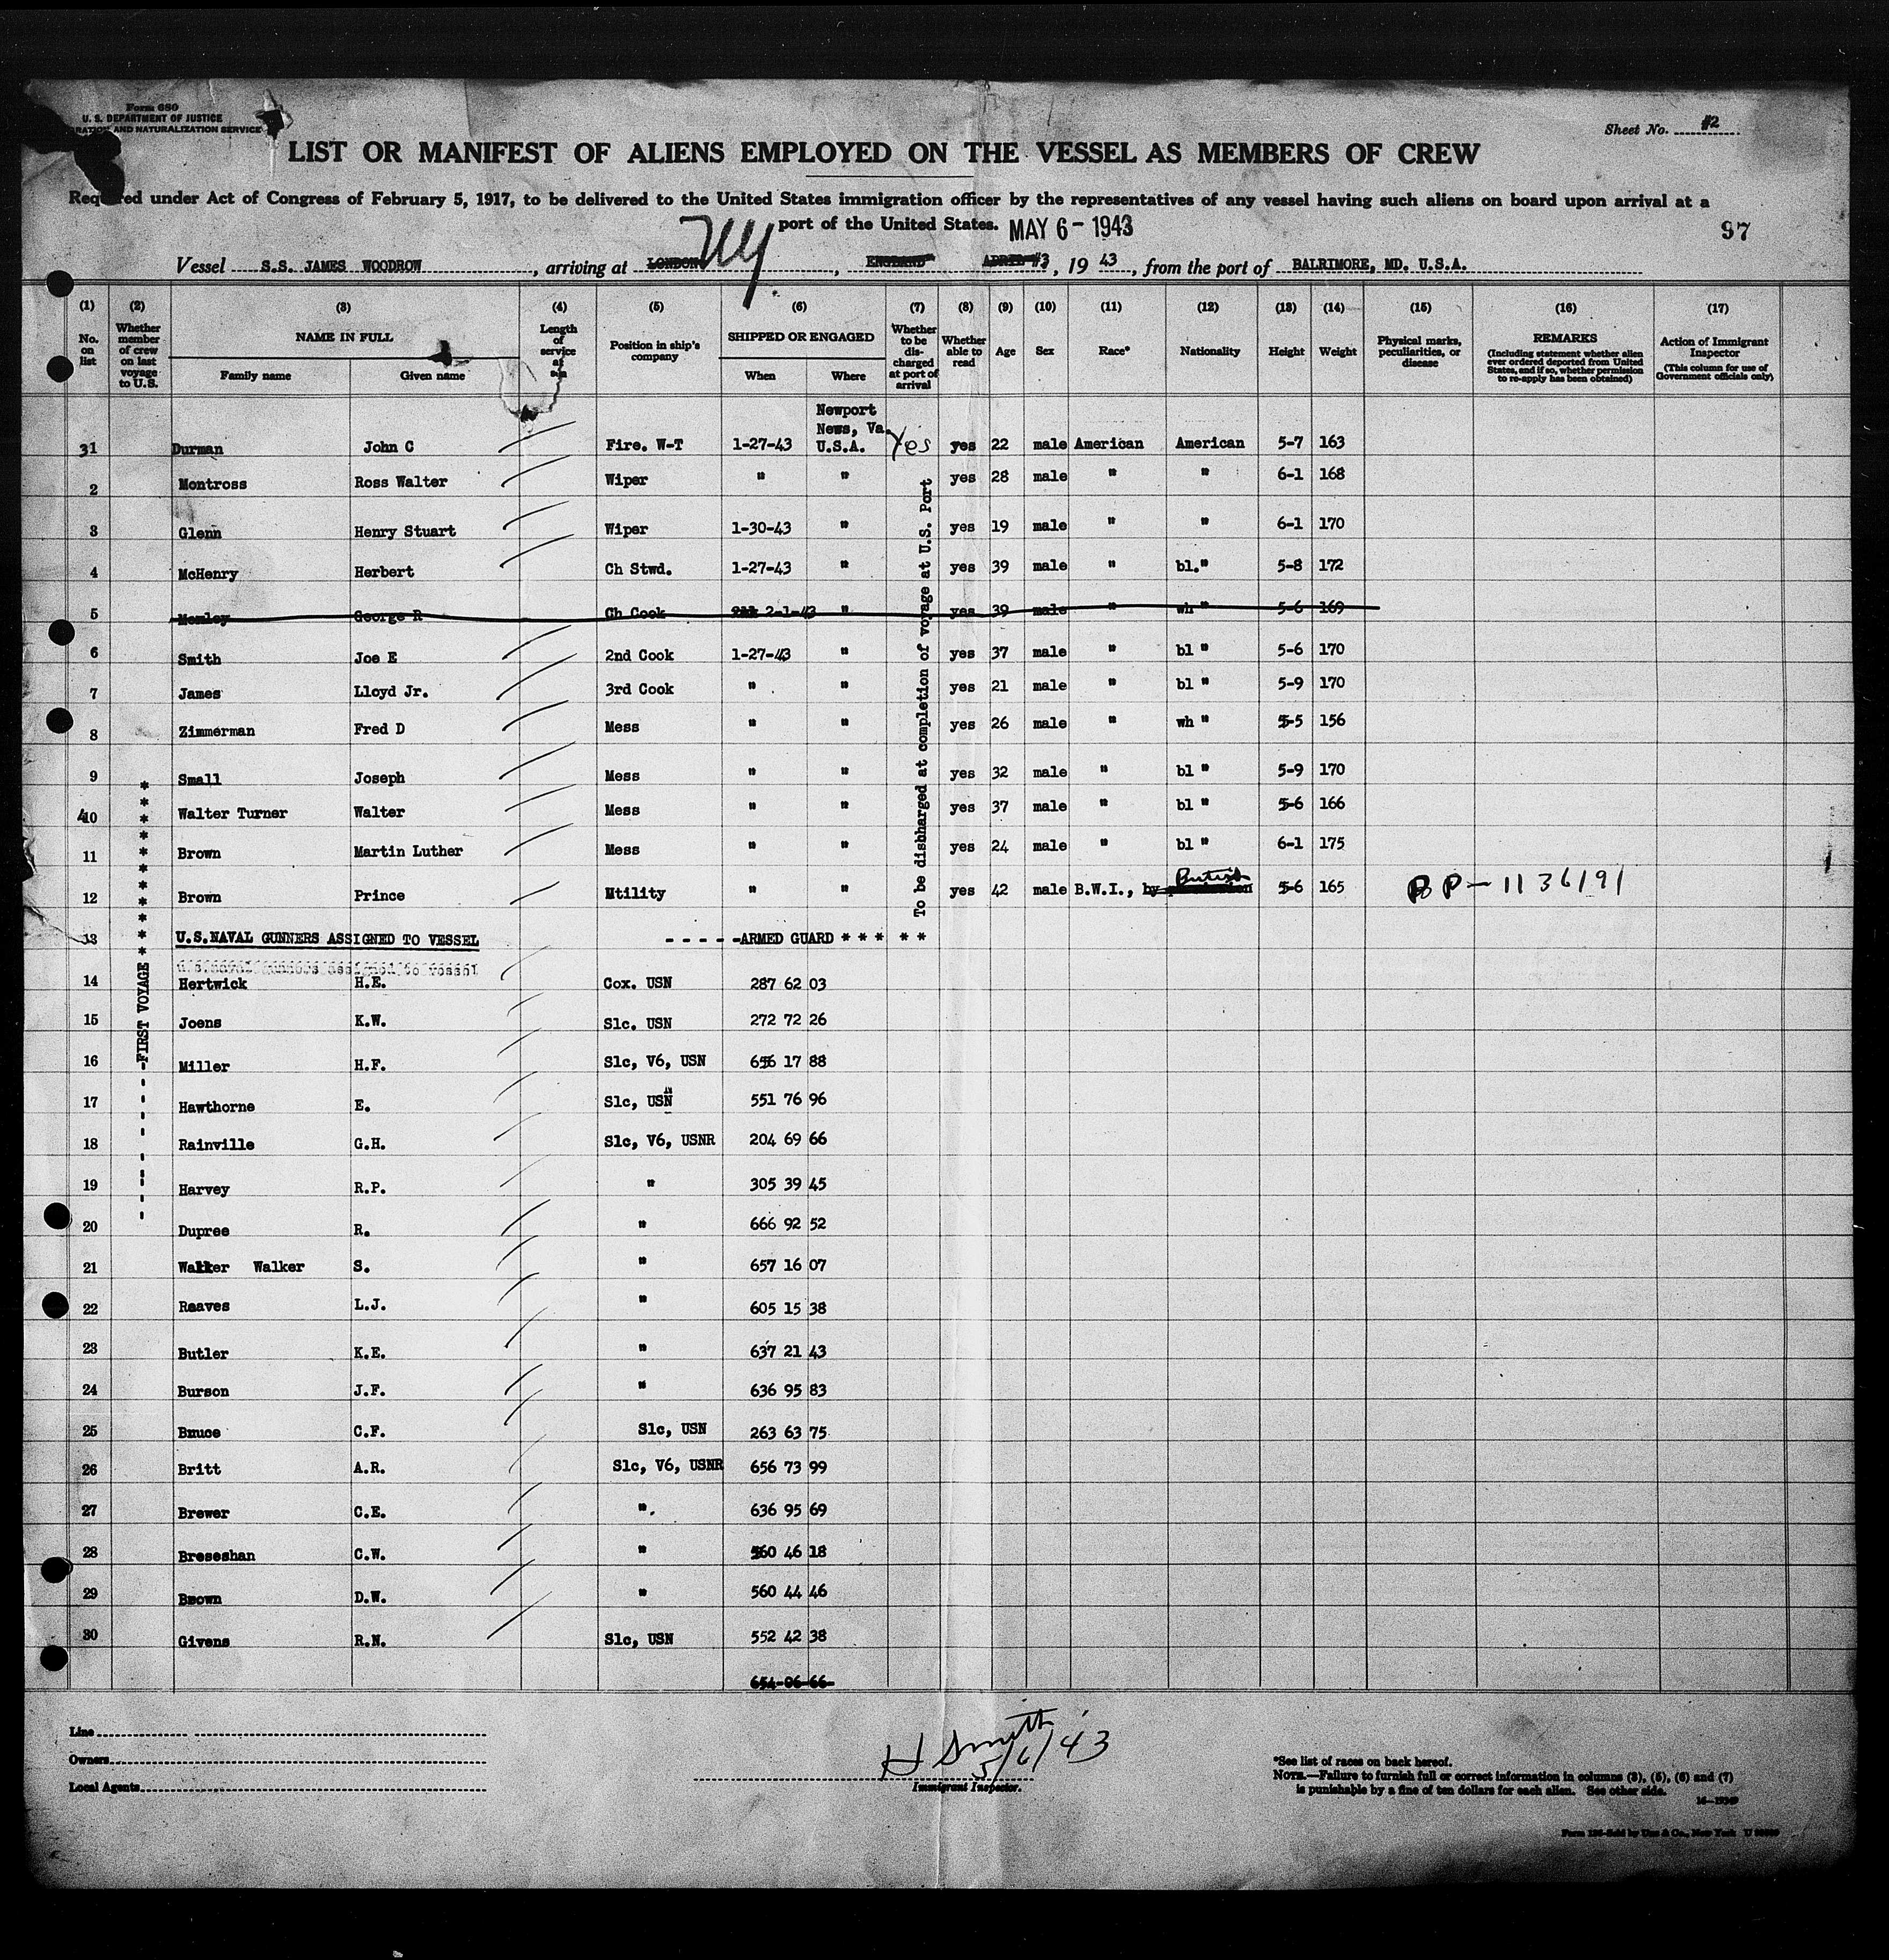 Form 680
U. S. DEPARTMENT OF JUSTICE
AND NATURALIZATION SERVICE
Sheet No. #2
LIST OR MANIFEST OF ALIENS EMPLOYED ON THE VESSEL AS MEMBERS OF CREW
Required under Act of Congress of February 5, 1917, to be delivered to the United States immigration officer by the representatives of any vessel having such aliens on board upon arrival at a
port of the United States. MAY 6 - 1943
97
Vessel S.S. JAMES WOODROW, arriving at LONDON NY, ENGLAND APRIL #3, 19 43, from the port of BALRIMORE, MD. U.S.A.
(1) (2) (3) (4) (5) (6) (7) (8) (9) (10) (11) (12) (13) (14) (15) (16) (17)
No. on list
Whether member of crew on last voyage to U.S.
NAME IN FULL
Family name Given name
Length of service at
Position in ship's company
SHIPPED OR ENGAGED
When Where
Whether to be discharged at port of arrival
Whether able to read
Age
Sex
Race*
Nationality
Height
Weight
Physical marks, peculiarities, or disease
REMARKS
(Including statement whether alien ever ordered deported from United States, and if so, whether permission to re-apply has been obtained)
Action of Immigrant Inspector
(This column for use of Government officials only)
31 Durman John C Fire. W-T 1-27-43 Newport News, Va. U.S.A. Yes yes 22 male American American 5-7 163
2 Montross Ross Walter Wiper " " yes 28 male " " 6-1 168
3 Glenn Henry Stuart Wiper 1-30-43 " yes 19 male " " 6-1 170
4 McHenry Herbert Ch Stwd. 1-27-43 " yes 39 male " bl." 5-8 172
5 George R Ch Cook 2-1-43 " yes 39 male " wh " 5-6 169
6 Smith Joe E 2nd Cook 1-27-43 " yes 37 male " bl " 5-6 170
7 James Lloyd Jr. 3rd Cook " " yes 21 male " bl " 5-9 170
8 Zimmerman Fred D Mess " " yes 26 male " wh " 5-5 156
9 Small Joseph Mess " " yes 32 male " bl " 5-9 170
40 Walter Turner Walter Mess " " yes 37 male " bl " 5-6 166
11 Brown Martin Luther Mess " " yes 24 male " bl " 6-1 175
12 Brown Prince Mtility " " yes 42 male B.W.I., by British 5-6 165 BP-1136191
To be disbharged at completion of voyage at U.S. Port
13 U.S.NAVAL GUNNERS ASSIGNED TO VESSEL - - - - -ARMED GUARD * * * * *
u.s.naval gunners assigned to vessel
* * * * * * * * * * * -FIRST VOYAGE - - - - - - - - -
14 Hertwick H.E. Cox. USN 287 62 03
15 Joens K.W. Slc. USN 272 72 26
16 Miller H.F. Slc, V6, USN 656 17 88
17 Hawthorne E. Slc, USN 551 76 96
18 Rainville G.H. Slc, V6, USNR 204 69 66
19 Harvey R.P. " 305 39 45
20 Dupree R. " 666 92 52
21 Walker Walker S. " 657 16 07
22 Reaves L.J. " 605 15 38
23 Butler K.E. " 637 21 43
24 Burson J.F. " 636 95 83
25 Bruce C.F. Slc, USN 263 63 75
26 Britt A.R. Slc, V6, USNR 656 73 99
27 Brewer C.E. ". 636 95 69
28 Breseshan C.W. " 560 46 18
29 Brown D.W. " 560 44 46
30 Givens R.N. Slc, USN 552 42 38
654-06-66-
Line
Owners
Local Agents
H Smith 5/6/43
Immigrant Inspector.
*See list of races on back hereof.
NOTE.—Failure to furnish full or correct information in columns (3), (5), (6) and (7)
is punishable by a fine of ten dollars for each alien. See other side.